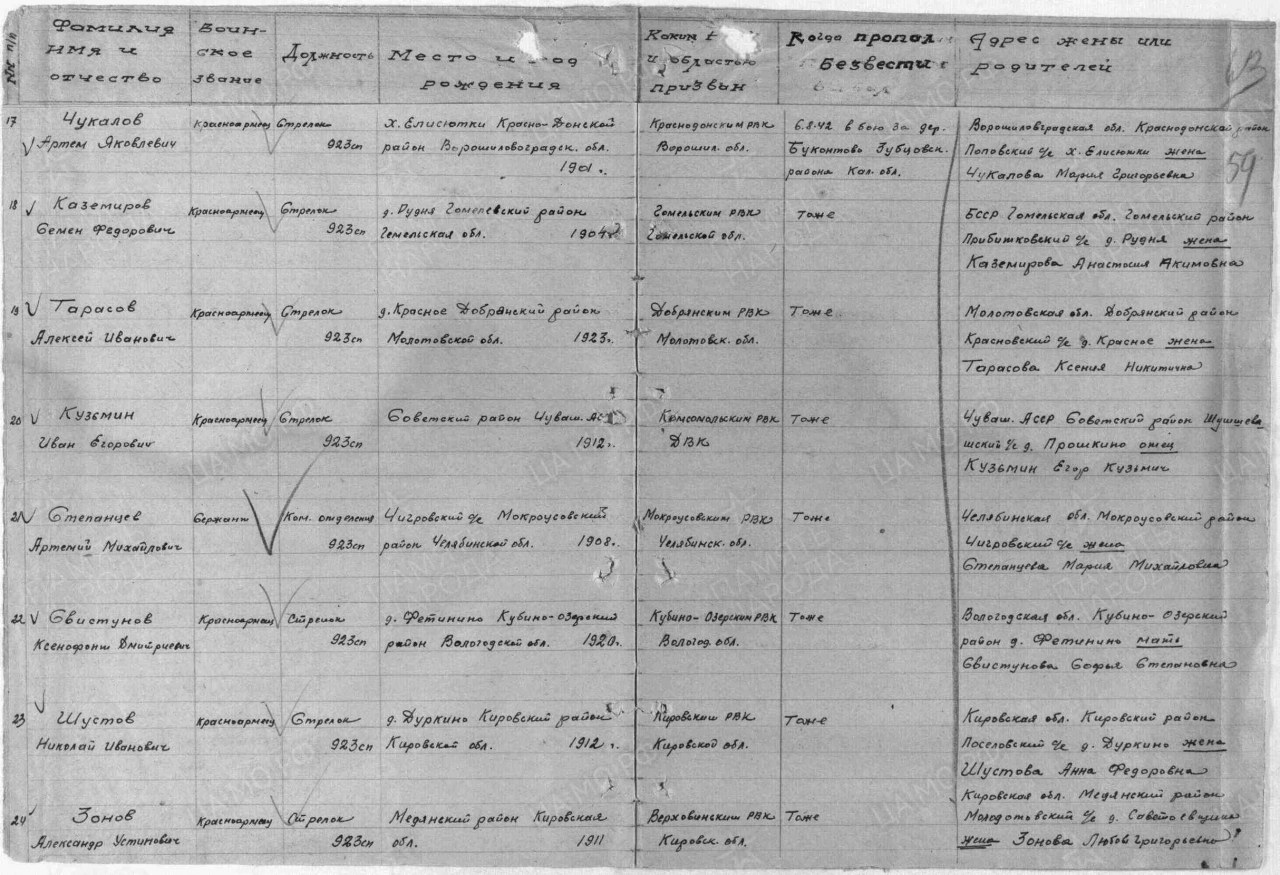 №№ п/п
Фамилия имя и отчество
Воин-ское звание
Должность
Место и год рождения
Каким и областью призван
Когда пропал Безвести
Адрес жены или родителей
59
17 Чукалов Красноармеец Стрелок х. Елисютки Красно-Донской Краснодонским РВК 6.8.42 в бою за дер. Ворошиловградская обл. Краснодонской район
Артем Яковлевич 923сп район Ворошиловоградск. обл. Ворошил. обл. Буконтово Зубцовск. Поповский с/с х. Елисютки жена
1901г. района Кал. обл. Чукалова Мария Григорьевна
18 Каземиров Красноармеец Стрелок д. Рудня Гомелевский район Гомельским РВК Тоже БССР Гомельская обл. Гомельский район
Семен Федорович 923сп Гомельская обл. 1904г Гомельской обл. Прибитковский с/с д. Рудня жена
Каземирова Анастасия Акимовна
19 Тарасов Красноармеец Стрелок д. Красное Добрянский район Добрянским РВК Тоже Молотовская обл. Добрянский район
Алексей Иванович 923сп Молотовской обл. 1923г. Молотовск. обл. Красновский с/с д. Красное жена
Тарасова Ксения Никитична
20 Кузьмин Красноармеец Стрелок Советский район Чуваш. Комсомольским РВК Тоже Чуваш. АССР Советский район
Иван Егорович 923сп 1912г. ДВК шский с/с д. Прошкино отец
Кузьмин Егор Кузьмич
21 Степанцев Сержант Ком. отделения Чигровский с/с Мокроусовский Мокроусовским РВК Тоже Челябинская обл. Мокроусовский район
Артемий Михайлович 923сп район Челябинской обл. 1908г. Челябинск. обл. Чигровский с/с жена
Степанцева Мария Михайловна
22 Свистунов Красноармеец Стрелок д. Фетинино Кубино-Озерский Кубино-Озерским РВК Тоже Вологодская обл. Кубино-Озерский
Ксенофонт Дмитриевич 923сп район Вологодской обл. 1920г. Вологод. обл. район д. Фетинино мать
Свистунова Софья Степановна
23 Шустов Красноармеец Стрелок д. Дуркино Кировский район Кировским РВК Тоже Кировская обл. Кировский район
Николай Иванович 923сп Кировской обл. 1912г. Кировской обл. Поселовский с/с д. Дуркино жена
Шустова Анна Федоровна
Кировская обл. Медянский район
24 Зонов Красноармеец Стрелок Медянский район Кировская Верховинским РВК Тоже Молодотовский с/с д.
Александр Устинович 923сп обл. 1911 Кировск. обл. жена Зонова Любой Григорьевна